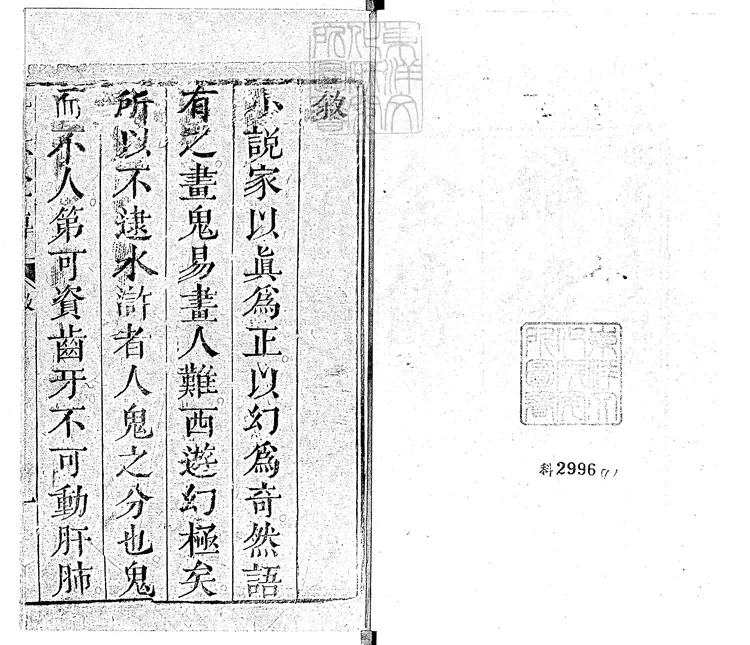 敘
小說家以眞爲正以幻爲奇然語
有之畫鬼易畫人難西遊幻極矣
所以不逮水滸者人鬼之分也鬼
而不人第可資齒牙不可動肝肺
科2996